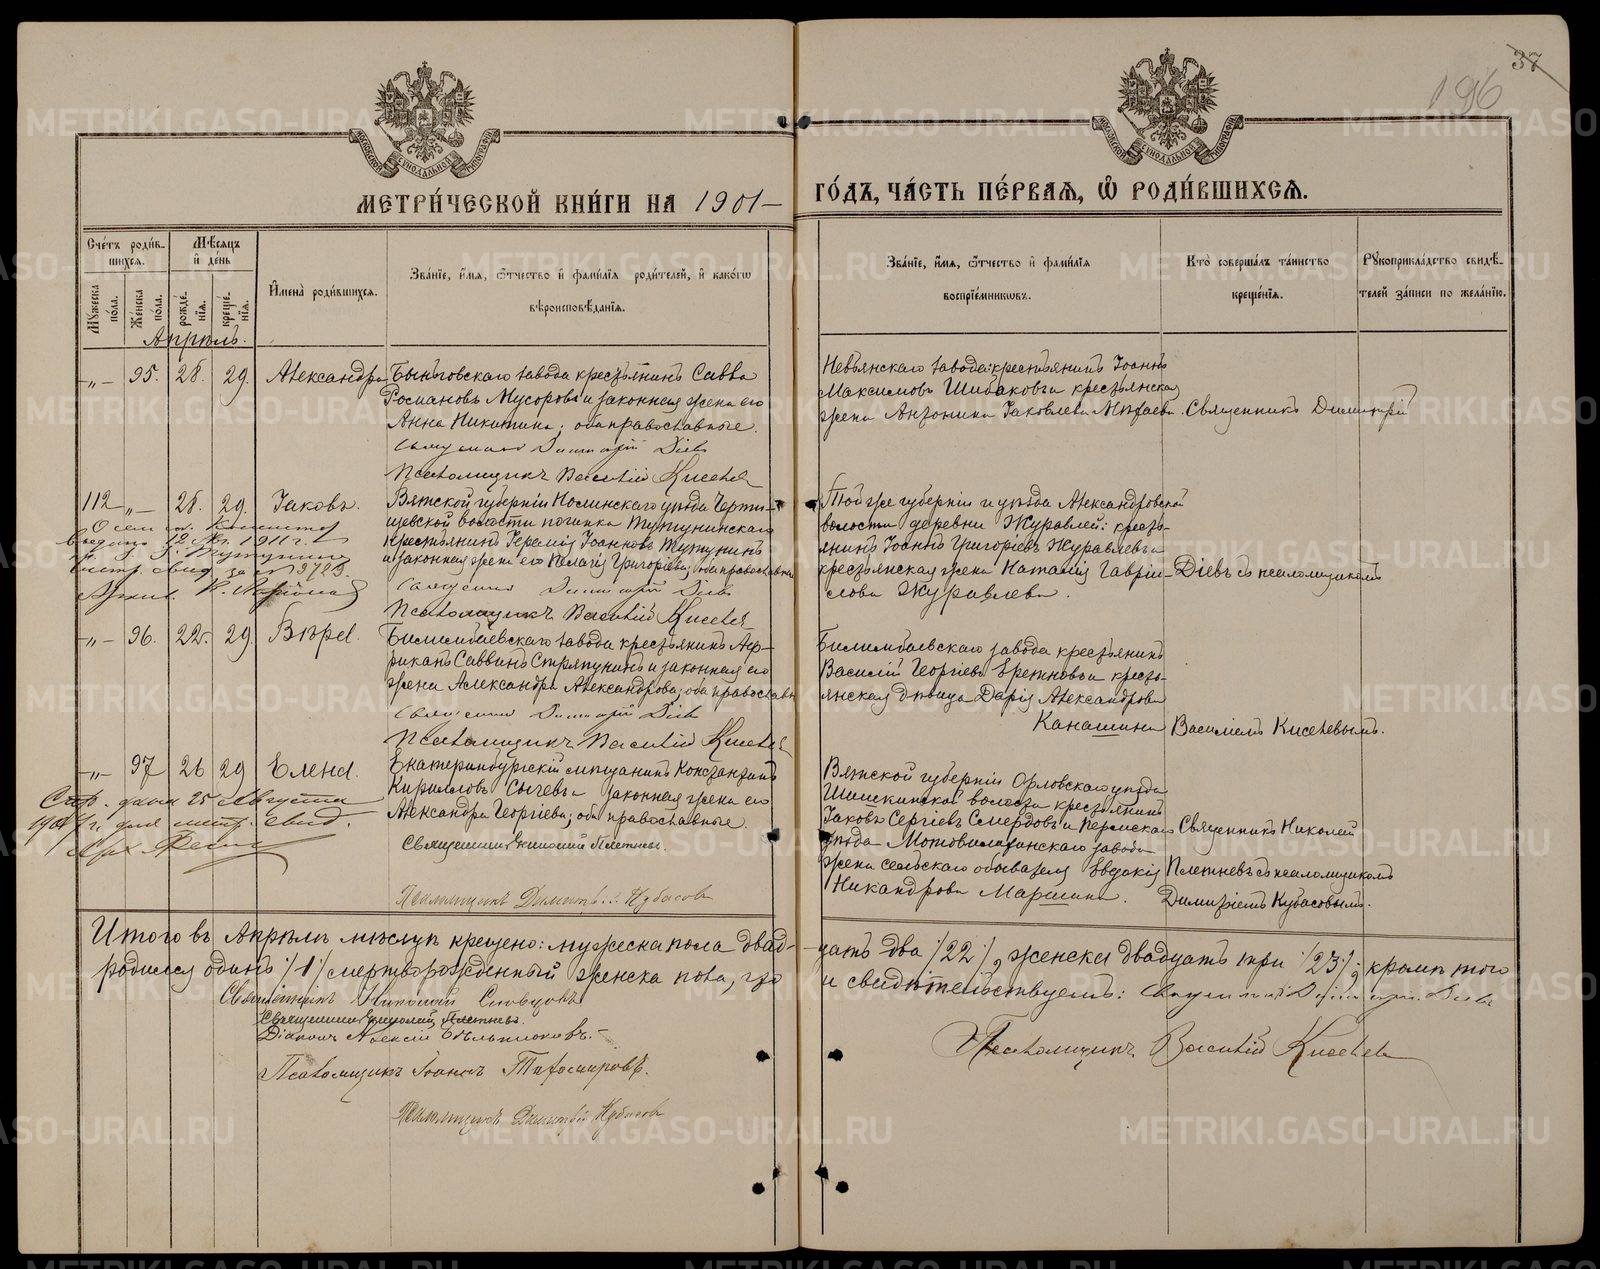 37
196
МЕТРИ́ЧЕСКОЙ КНИ́ГИ НА 1901 ГО́ДЪ, ЧА́СТЬ ПЕ́РВАЯ, Ѡ РОДИ́ВШИХСЯ.
Сче́тъ роди́в-
шихся.
Мѣ́сяцъ
и де́нь
Мꙋ́жеска по́ла.
Же́нска по́ла.
рожде́нїѧ.
креще́нїѧ.
И҆мена̀ роди́вшихся.
Зва́нїе, и҆́мя, ѻ҆́тчество и҆ фами́лїя роди́телей, и҆ како́гѡ
вѣроисповѣ́данїя.
Зва́нїе, и҆́мя, ѻ҆́тчество и҆ фами́лїя
воспрїе́мникѡвъ.
Кто̀ соверша́лъ та́инство
креще́нїя.
Рꙋкоприкла́дство свидѣ́-
телей за́писи по жела́нїю.
Апрѣль.
-„- 95. 28. 29. Александра
Быньговскаго завода крестьянинъ Савва
Романовъ Мусоровъ и законная жена его
Анна Никитина; оба православные.
Священникъ Димитрій Діевъ
Псаломщикъ Василій Киселевъ
Невьянскаго завода: крестьянинъ Іоаннъ
Максимовъ Шибаковъ и крестьянская
жена Антонина Іаковлева
Священникъ Димитрій
112 -„- 28. 29. Іаковъ.
Вятской губерніи Нолинскаго уѣзда
волости починка Тутунинскаго
крестьянинъ Іеремія Іоанновъ Тутунинъ
и законная жена его Пелагія Григоріева; оба православные
Священникъ Димитрій Діевъ
Псаломщикъ Василій Киселевъ
Той же губерніи и уѣзда Александровской
волости деревни Журавлей: кресть-
янинъ Іоаннъ Григоріевъ Журавлевъ и
крестьянская жена Наталія Гавріи-
лова Журавлева.
Діевъ съ псаломщикомъ
12 1911 г.
-„- 96. 22. 29 Вѣра.
Билимбаевскаго завода крестьянинъ Аф-
риканъ Саввинъ Стряпунинъ и законная его
жена Александра Александрова; оба православные
Священникъ Димитрій Діевъ
Псаломщикъ Василій Киселевъ
Билимбаевскаго завода крестьянинъ
Василій Георгіевъ и кресть-
янская дѣвица Дарія Александрова
Канашина
Василіемъ Киселевымъ.
-„- 97 26 29 Елена.
Екатеринбургскій мѣщанинъ Константинъ
Кирилловъ Сычевъ и законная жена его
Александра Георгіева; оба православные.
Священникъ Николай Плетневъ.
Псаломщикъ Димитрій Кубасовъ
Вятской губерніи Орловскаго уѣзда
Шишкинской волости крестьянинъ
Іаковъ Сергіевъ Смердовъ и Пермскаго
уѣзда Мотовилихинскаго завода
жена сельскаго обывателя Евдокія
Никандрова Маршина.
Священникъ Николай
Плетневъ съ псаломщикомъ
Димитріемъ Кубасовымъ.
25 Августа
Итого въ Апрѣлѣ мѣсяцѣ крещено: мужеска пола двад-цать два /22/, женска двадцать три /23/; кромѣ того
родился одинъ /1/ мертворожденный женска пола, что и свидѣтельствуемъ: Священникъ Димитрій Діевъ
Священникъ Николай Словцовъ
Священникъ Николай Плетневъ.
Діаконъ Алексій
Псаломщикъ Іоаннъ Тихомировъ.
Псаломщикъ Василій Киселевъ
Псаломщикъ Димитрій Кубасовъ
METRIKI.GASO-URAL.RU